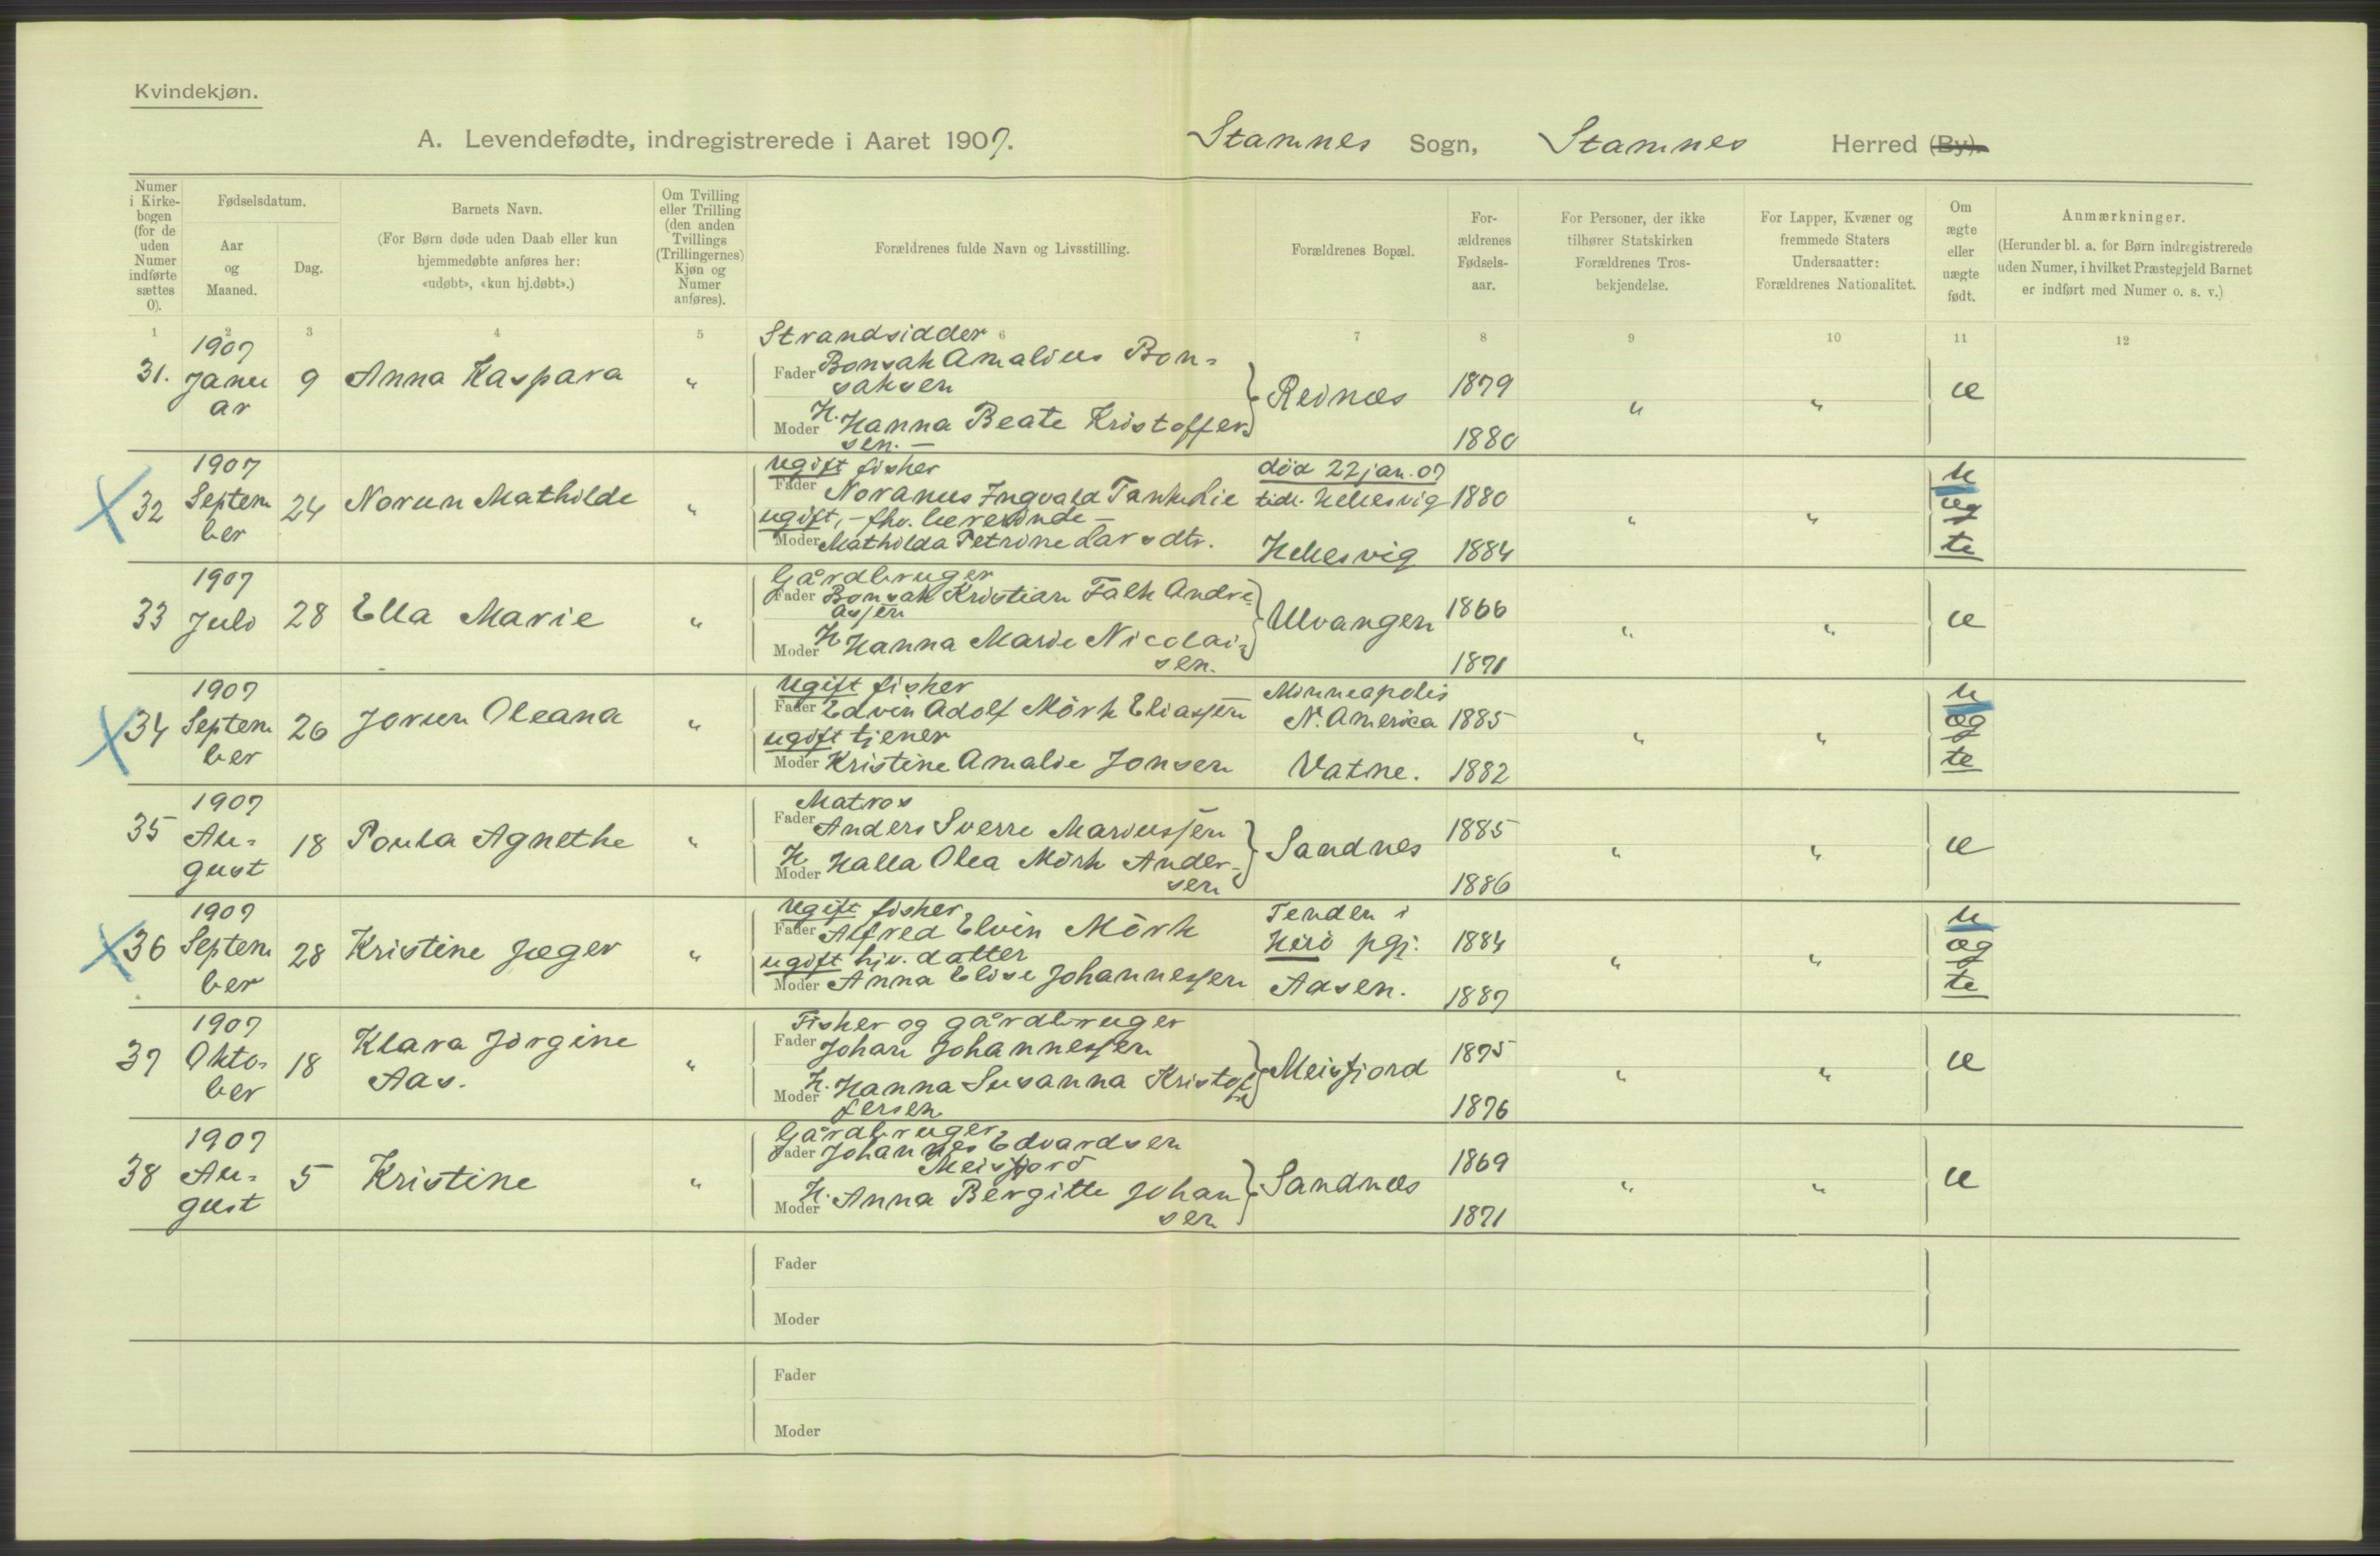 Kvindekjøn.
A. Levendefødte, indregistrerede i Aaret 1907. Stamnes Sogn, Stamnes Herred (By).
Numer i Kirkebogen (for de uden Numer indførte sættes 0).
Fødselsdatum.
Aar og Maaned.
Dag.
Barnets Navn.
(For Børn døde uden Daab eller kun hjemmedøbte anføres her: «udøbt», «kun hj.døbt».)
Om Tvilling eller Trilling (den anden Tvillings (Trillingernes) Kjøn og Numer anføres).
Forældrenes fulde Navn og Livsstilling.
Forældrenes Bopæl.
Forældrenes Fødselsaar.
For Personer, der ikke tilhører Statskirken Forældrenes Trosbekjendelse.
For Lapper, Kvæner og fremmede Staters Undersaatter: Forældrenes Nationalitet.
Om ægte eller uægte født.
Anmærkninger.
(Herunder bl. a. for Børn indregistrerede uden Numer, i hvilket Præstegjeld Barnet er indført med Numer o. s. v.)
1 2 3 4 5 6 7 8 9 10 11 12
31. 1907 Januar 9 Anna Kaspara "
Strandsidder
Fader Bonsak Amalius Bonsaksen 1879
Moder H. Hanna Beate Kristoffersen. — 1880
Reinæs " " æ
32 1907 September 24 Norun Mathilde "
Ugift fisker død 22 jan. 07
Fader Noranus Ingvald Tank Lie tidl. Hellesvig 1880
ugift, - fhv. lærerinde —
Moder Mathilda Petrine Larsdtr. Hellesvig 1884
" " uægte
33 1907 Juli 28 Ella Marie "
Gårdbruger
Fader Bonsak Kristian Falk Andreassen 1866
Moder H Hanna Marie Nicolaisen. 1871
Ulvangen " " æ
34 1907 September 26 Jorun Oleana "
Ugift fisker Minneapolis
Fader Edvin Adolf Mörk Eliassen N. America 1885
ugift tjener
Moder Kristine Amalie Jonsen Vatne. 1882
" " uægte
35 1907 August 18 Poula Agnethe "
Matros
Fader Anders Sverre Mariussen 1885
Moder H Halla Olea Mörk Andersen 1886
Sandnes " " æ
36 1907 September 28 Kristine Jæger "
Ugift fisker Tenden i
Fader Alfred Elvin Mörk Herö pgj. 1884
ugift hjv. datter
Moder Anna Elise Johannessen Aasen. 1887
" " uægte
37 1907 Oktober 18 Klara Jørgine Aas. "
Fisker og gårdbruger
Fader Johan Johannessen 1875
Moder H. Hanna Susanna Kristoffersen 1876
Meisfjord " " æ
38 1907 August 5 Kristine "
Gårdbruger
Fader Johannes Edvardsen Meisfjord 1869
Moder H. Anna Bergitte Johansen 1871
Sandnæs " " æ
Fader
Moder
Fader
Moder